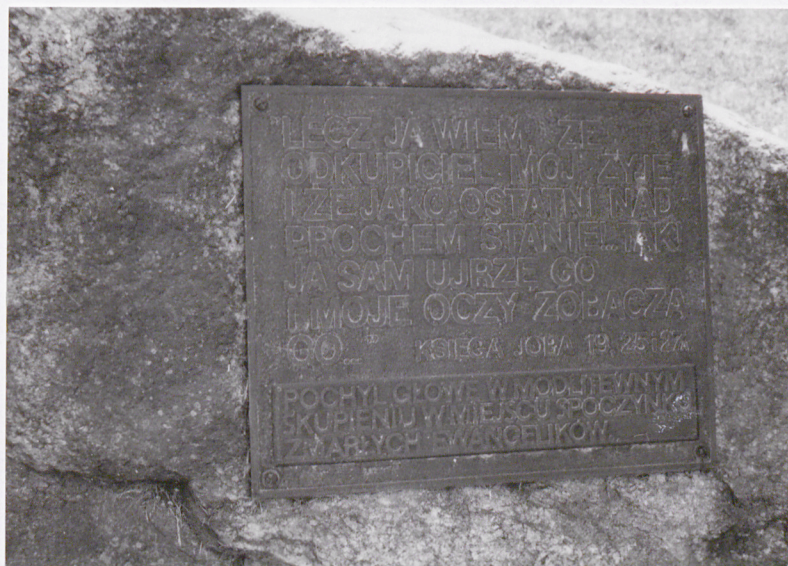 "LECZ JA WIEM, ŻE
ODKUPICIEL MÓJ ŻYJE
I ŻE JAKO OSTATNI NAD
PROCHEM STANIE!...TAK!
JA SAM UJRZĘ GO
I MOJE OCZY ZOBACZĄ
GO..." KSIĘGA JOBA 19, 25 I 27A
POCHYL GŁOWĘ W MODLITEWNYM
SKUPIENIU W MIEJSCU SPOCZYNKU
ZMARŁYCH EWANGELIKÓW.